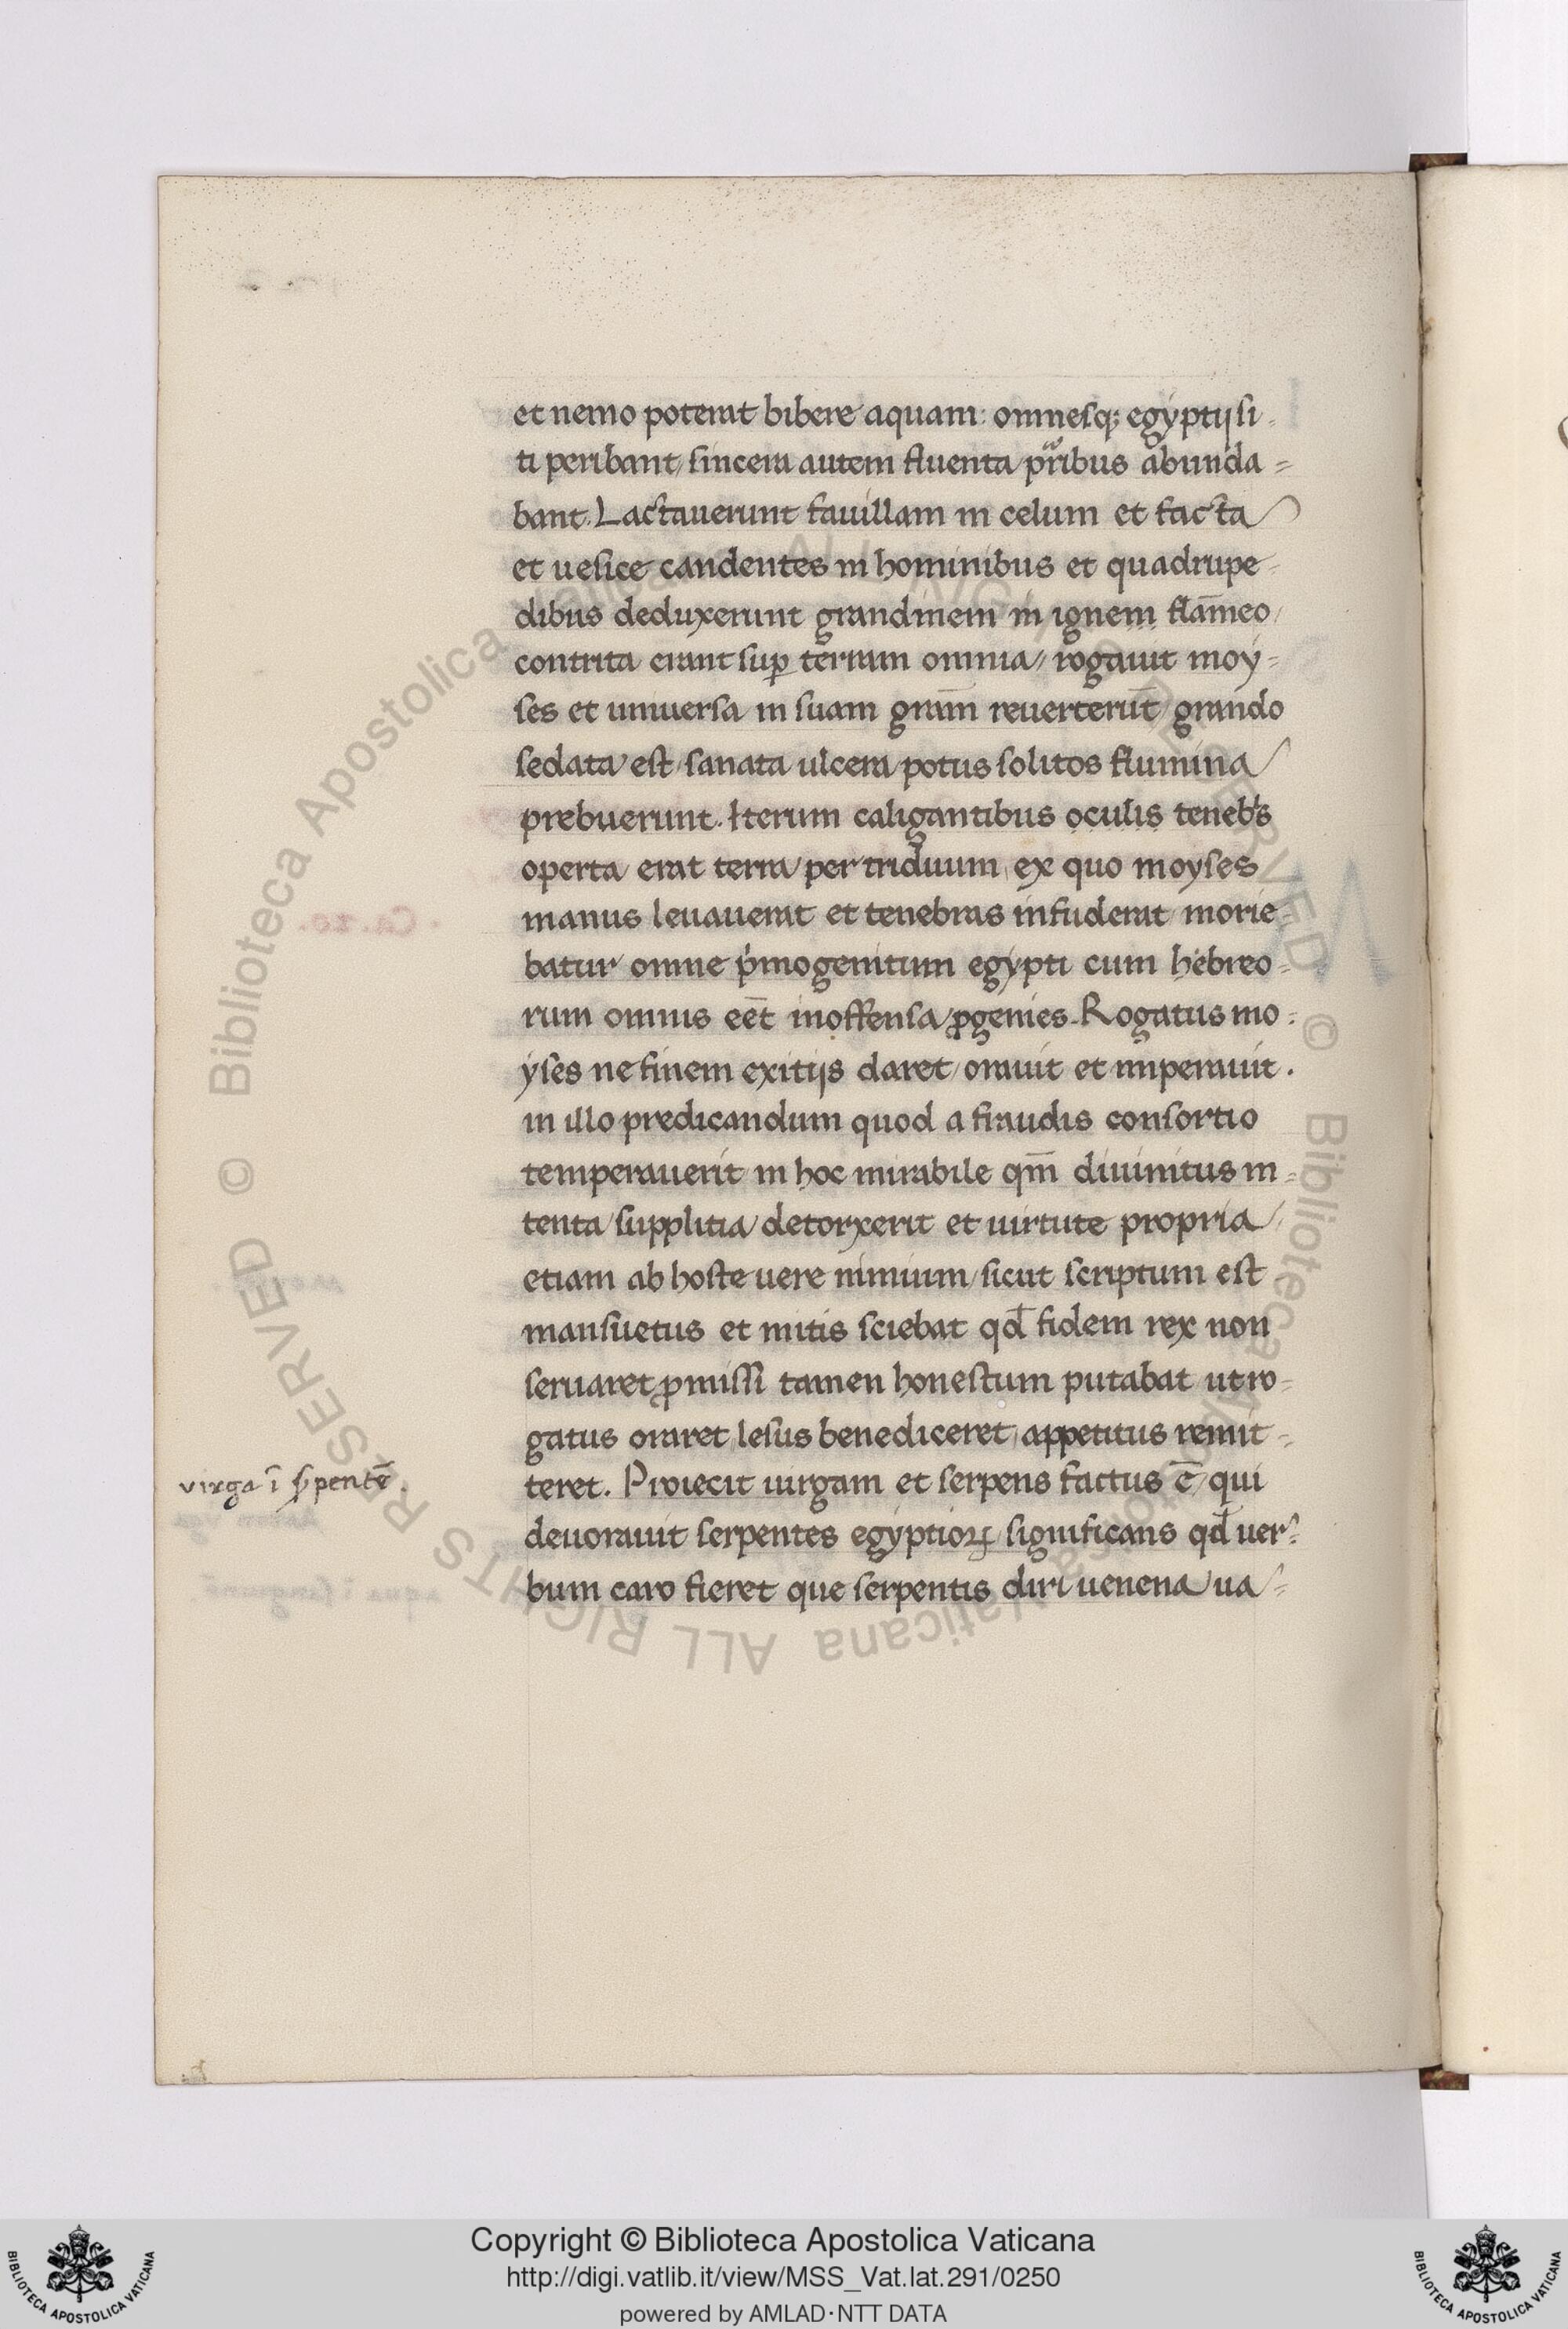 et nemo poterat bibere aquam: omnesq; egyptij si-
ti peribant/ sincera autem fluenta pr̃ibus abunda=
bant. Lactauerunt fauillam in celum et facta
et uesice candentes in hominibus et quadrupe-
dibus deduxerunt grandinem in ignem flãmeo/
contrita erant suꝑ terram omnia// rogauit moy=
ses et uniuersa in suam gram̃ reuerterũt/ grando
sedata est/ sanata ulcera/ potus solitos flumina
prebuerunt. Iterum caligantibus oculis teneb's
operta erat terra/ per triduum/ ex quo moyses
manus leuauerat et tenebras infuderat/ morie-
batur omne p'mogenitum egypti cum hebreo=
rum omnis eēt inoffensa/ ꝓgenies. Rogatus mo-
yses ne finem exitijs daret/ orauit et imperauit.
in illo predicandum quod a fraudis consortio
temperauerit/ in hoc mirabile qm̃ diuinitus in-
tenta/ supplitia/ detorxerit et uirtute propria/
etiam ab hoste uere nimium/ sicut scriptum est
mansuetus et mitis sciebat qđ fidem rex non
seruaret ꝓmissi tamen honestum putabat ut ro-
gatus oraret lesus benediceret/ appetitus remit-
teret. Proiecit uirgam et serpens factus ē/ qui
deuorauit serpentes egyptioꝝ/ significans qđ uer-
bum caro fieret que serpentis diri uenena ua-
virga ĩ s'pentẽ.
Copyright © Biblioteca Apostolica Vaticana
http://digi.vatlib.it/view/MSS_Vat.lat.291/0250
powered by AMLAD·NTT DATA
BIBLIOTECA APOSTOLICA VATICANA
BIBLIOTECA APOSTOLICA VATICANA
© Biblioteca Apostolica Vaticana ALL RIGHTS RESERVED
© Biblioteca Apostolica Vaticana ALL RIGHTS RESERVED